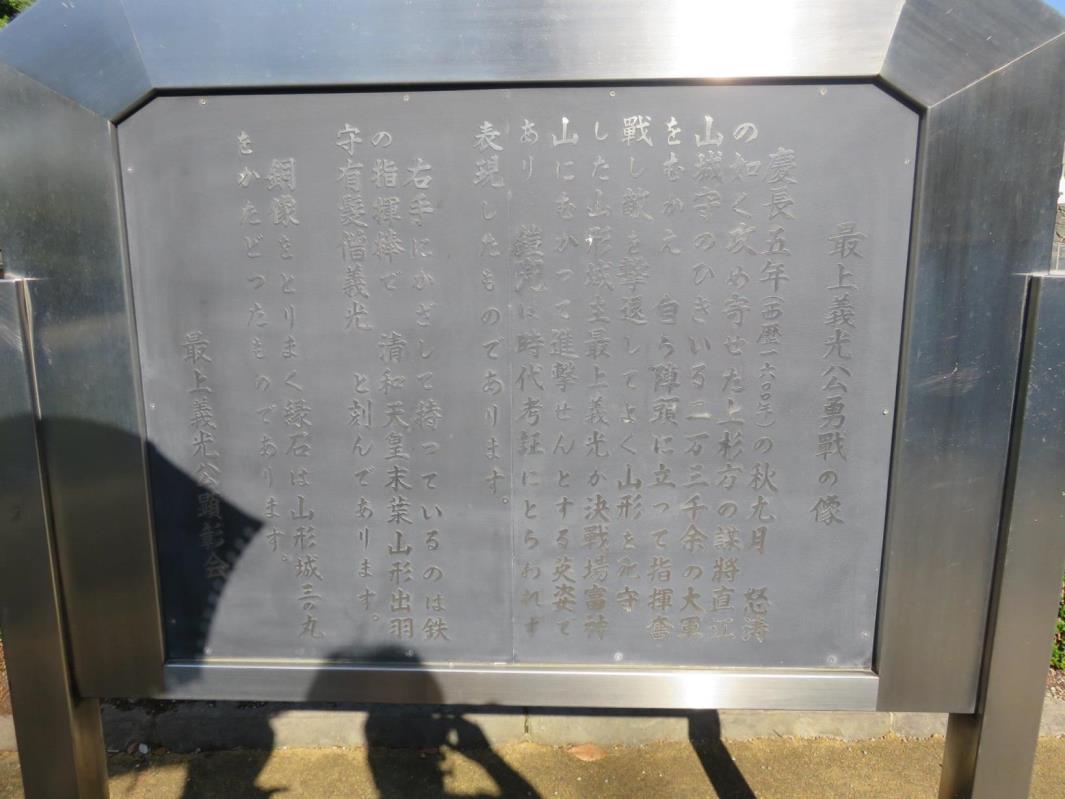 最上義光公勇戰の像
慶長五年（西歴一六〇〇年）の秋九月　怒涛
の如く攻め寄せた上杉方の謀将直江
山城守のひきいる二万三千余の大軍
をむかえ　自ら陣頭に立って指揮奮
戰し敵を撃退してよく山形を死守
した山形城主最上義光が決戰場富神
山にむかって進撃せんとする英姿で
あり　鎧兜は時代考証にとらわれず
表現したものであります。
右手にかざして持っているのは鉄
の指揮棒で　清和天皇末葉山形出羽
守有髪僧義光　と刻んであります。
銅像をとりまく縁石は山形城三の丸
をかたどつたものであります。
最上義光公顕彰会